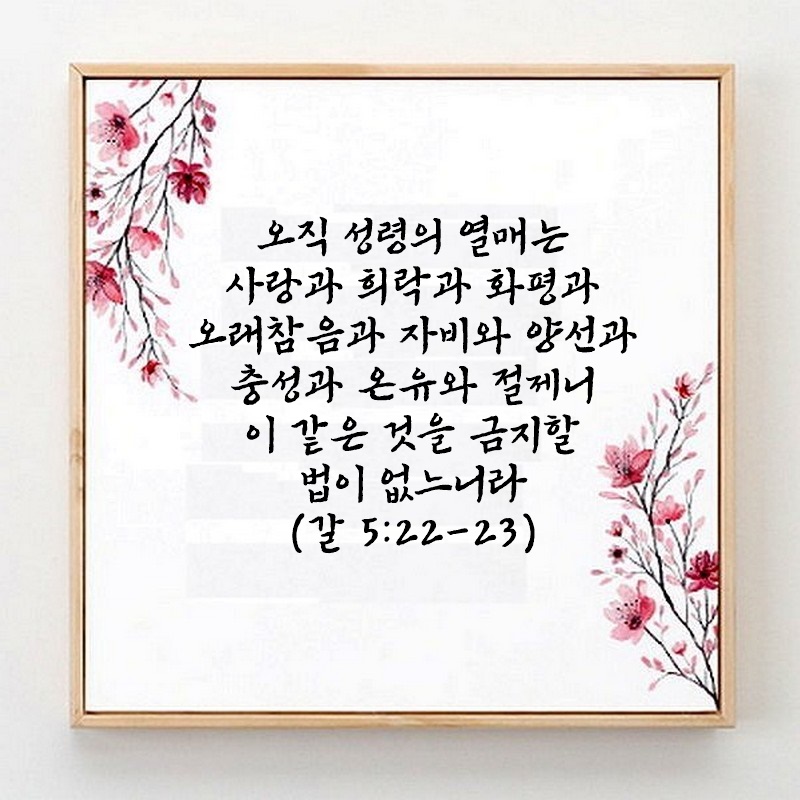 오직 성령의 열매는
사랑과 희락과 화평과
오래참음과 자비와 양선과
충성과 온유와 절제니
이 같은 것을 금지할
법이 없느니라
(갈 5:22-23)